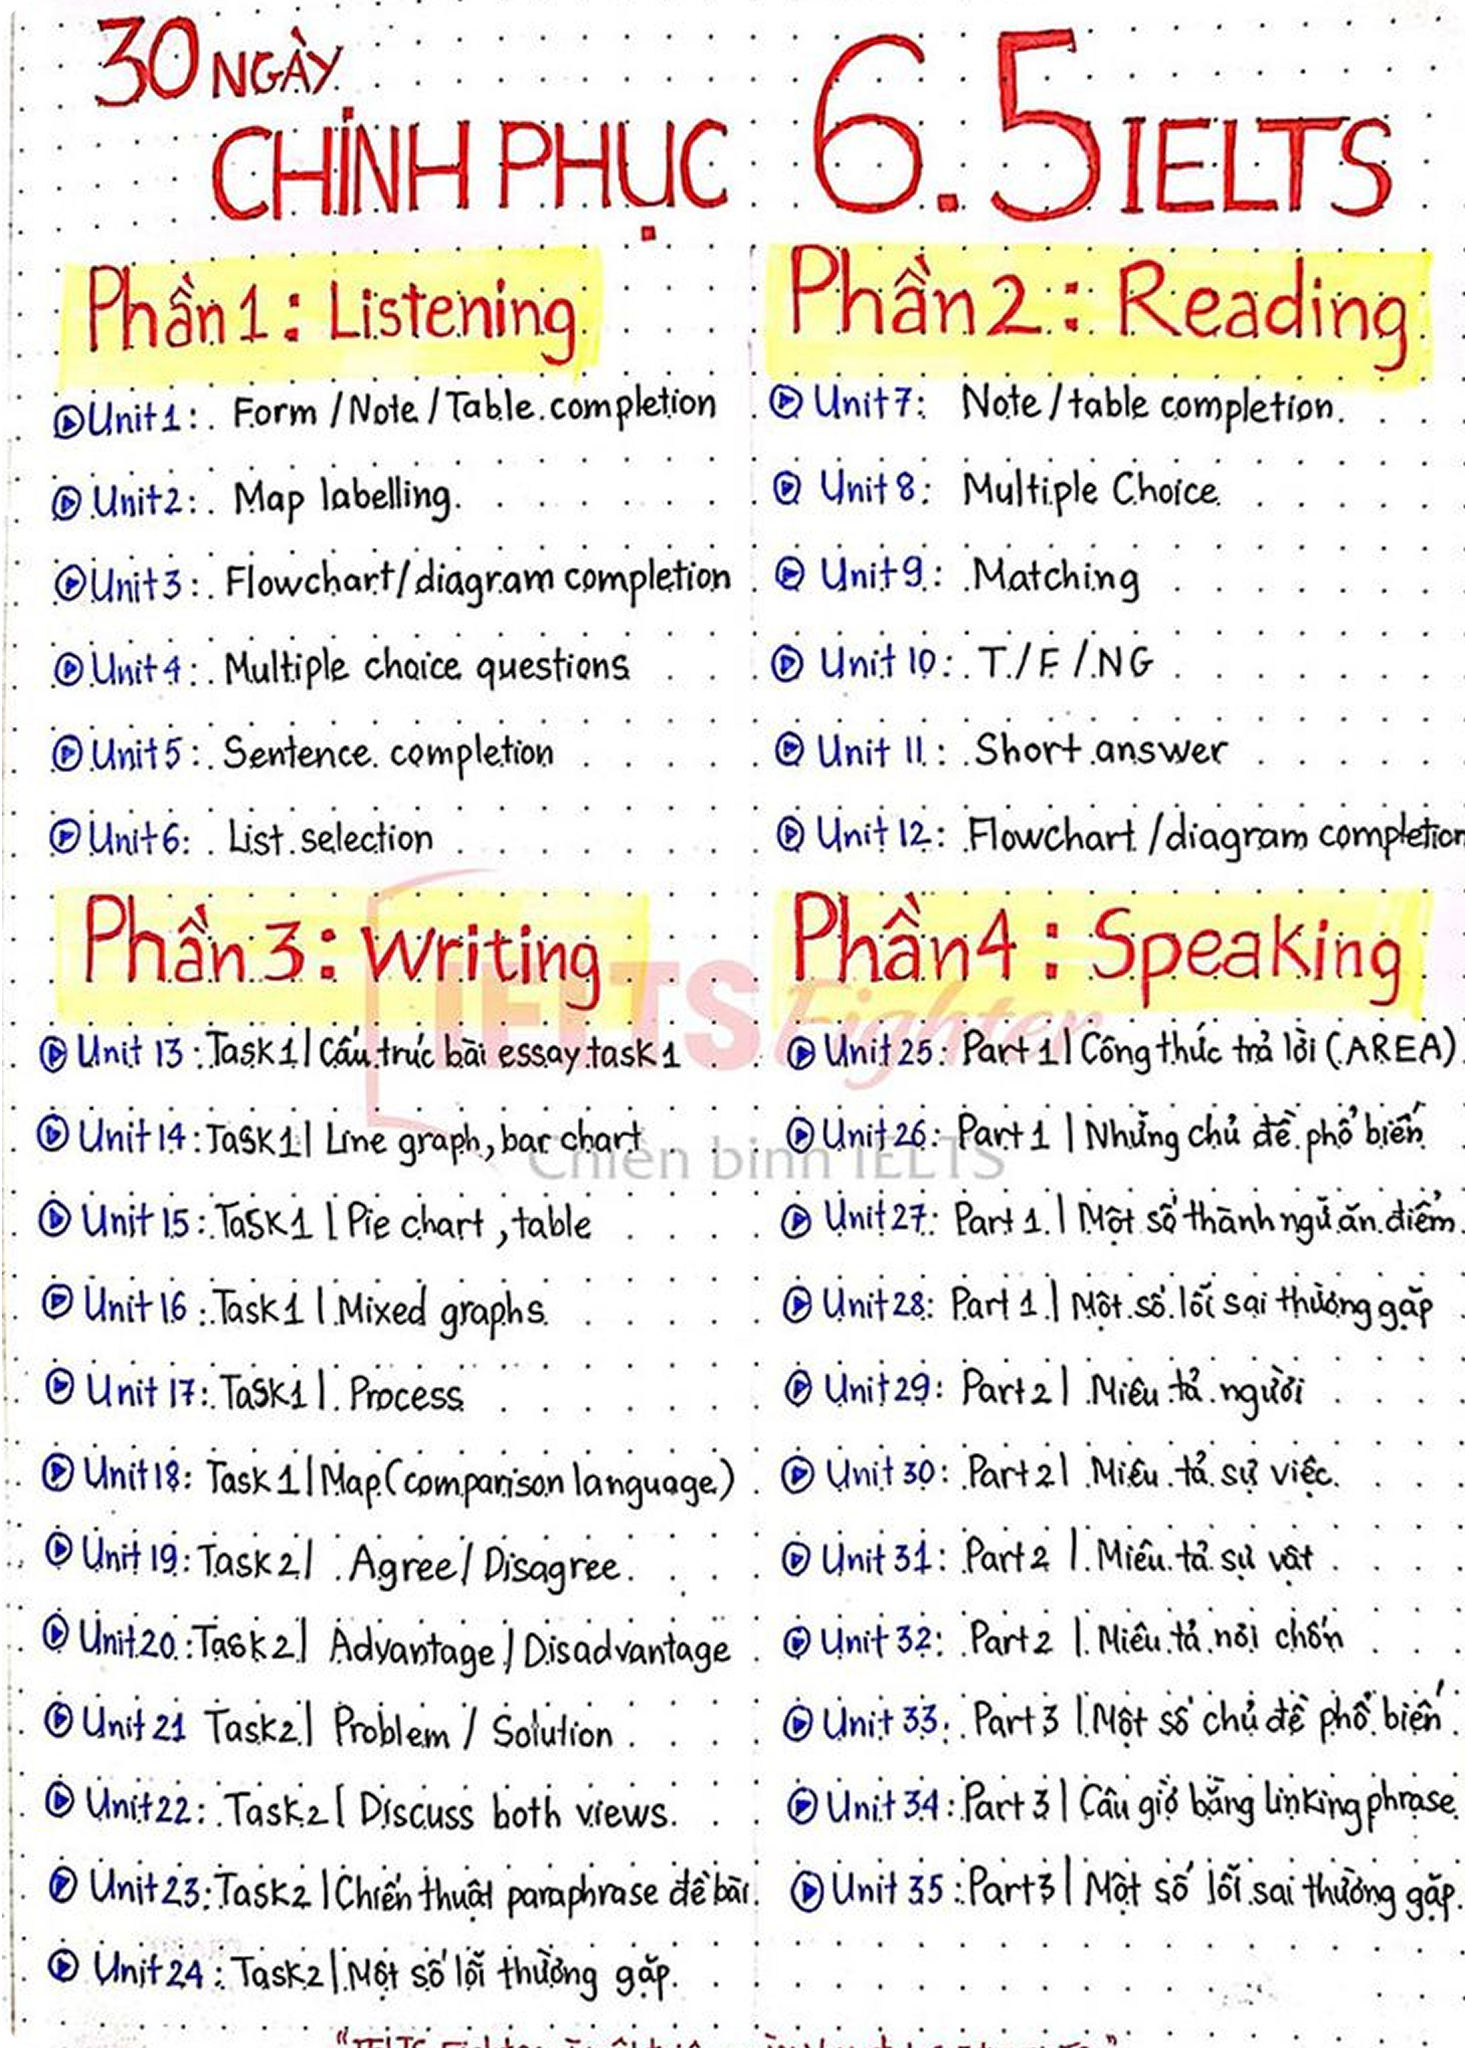 30 NGÀY
CHINH PHỤC 6.5 IELTS
Phần 1: Listening
Unit 1: Form / Note / Table completion
Unit 2: Map labelling
Unit 3: Flowchart/diagram completion
Unit 4: Multiple choice questions
Unit 5: Sentence completion
Unit 6: List selection
Phần 2: Reading
Unit 7: Note / table completion.
Unit 8: Multiple Choice
Unit 9: Matching
Unit 10: T / F / NG
Unit 11: Short answer
Unit 12: Flowchart / diagram completion
Phần 3: Writing
Unit 13: Task 1 | Cấu trúc bài essay task 1
Unit 14: Task 1 | Line graph, bar chart
Unit 15: Task 1 | Pie chart, table
Unit 16: Task 1 | Mixed graphs
Unit 17: Task 1 | Process
Unit 18: Task 1 | Map (comparison language)
Unit 19: Task 2 | Agree / Disagree.
Unit 20: Task 2 | Advantage / Disadvantage
Unit 21 Task 2 | Problem / Solution
Unit 22: Task 2 | Discuss both views.
Unit 23: Task 2 | Chiến thuật paraphrase đề bài
Unit 24: Task 2 | Một số lỗi thường gặp.
Phần 4: Speaking
Unit 25: Part 1 | Công thức trả lời (AREA)
Unit 26: Part 1 | Những chủ đề phổ biến
Unit 27: Part 1 | Một số thành ngữ ăn điểm
Unit 28: Part 1 | Một số lỗi sai thường gặp
Unit 29: Part 2 | Miêu tả người
Unit 30: Part 2 | Miêu tả sự việc.
Unit 31: Part 2 | Miêu tả sự vật
Unit 32: Part 2 | Miêu tả nơi chốn
Unit 33: Part 3 | Một số chủ đề phổ biến
Unit 34: Part 3 | Câu giờ bằng linking phrase
Unit 35: Part 3 | Một số lỗi sai thường gặp.
IELTS Fighter
Chiến binh IELTS
"IELTS Fighter